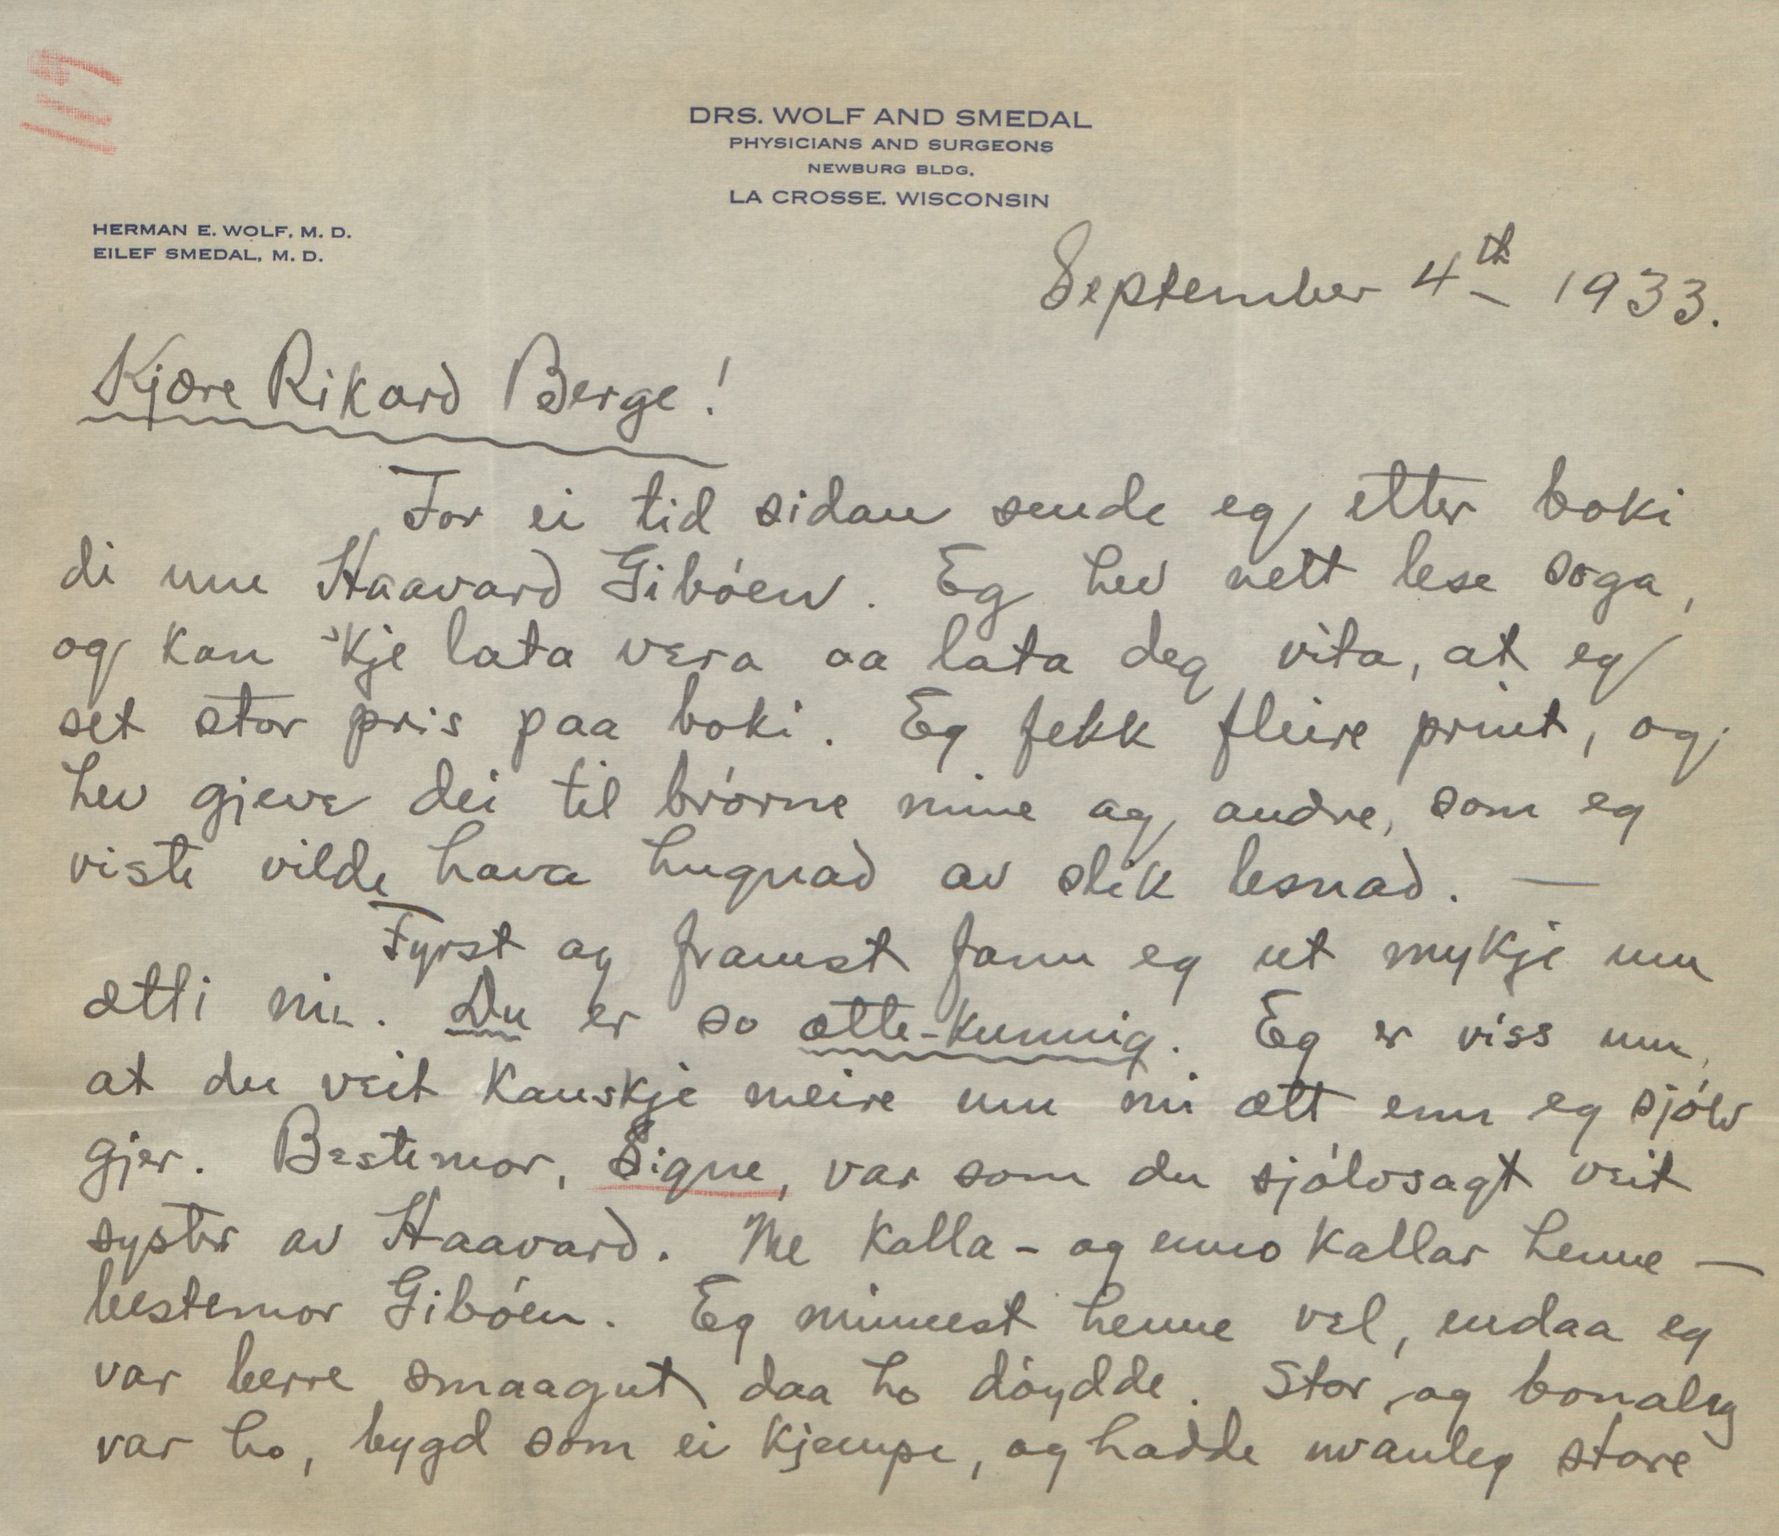 119
DRS. WOLF AND SMEDAL
PHYSICIANS AND SURGEONS
NEWBURG BLDG.
LA CROSSE, WISCONSIN
HERMAN E. WOLF, M. D.
EILEF SMEDAL, M. D.
September 4th 1933.
Kjære Rikard Berge!
For ei tid sidan sende eg etter boki
di um Haavard Gibóen. Eg hev nett lese soga,
og kan 'kje lata vera aa lata deg vita, at eg
set stor pris paa boki. Eg fekk fleire prent, og
hev gjeve dei til brórne mine og andre, som eg
viste vilde hava hugnad av slik lesnad. —
Fyrst og framst fann eg ut mykje um
ætti mi. Du er so ætte-kunnig. Eg er viss um,
at du veit kanskje meire um mi ætt enn eg sjólv
gjer. Bestemor, Signe, var som du sjólvsagt veit
syster av Haavard. Me kalla - og enno kallar henne —
bestemor Gibóen. Eg minnest henne vel, endaa eg
var berre smaagut daa ho dóydde. Stor og bonaleg
var ho, bygd som ei kjempe, og hadde uvanleg store